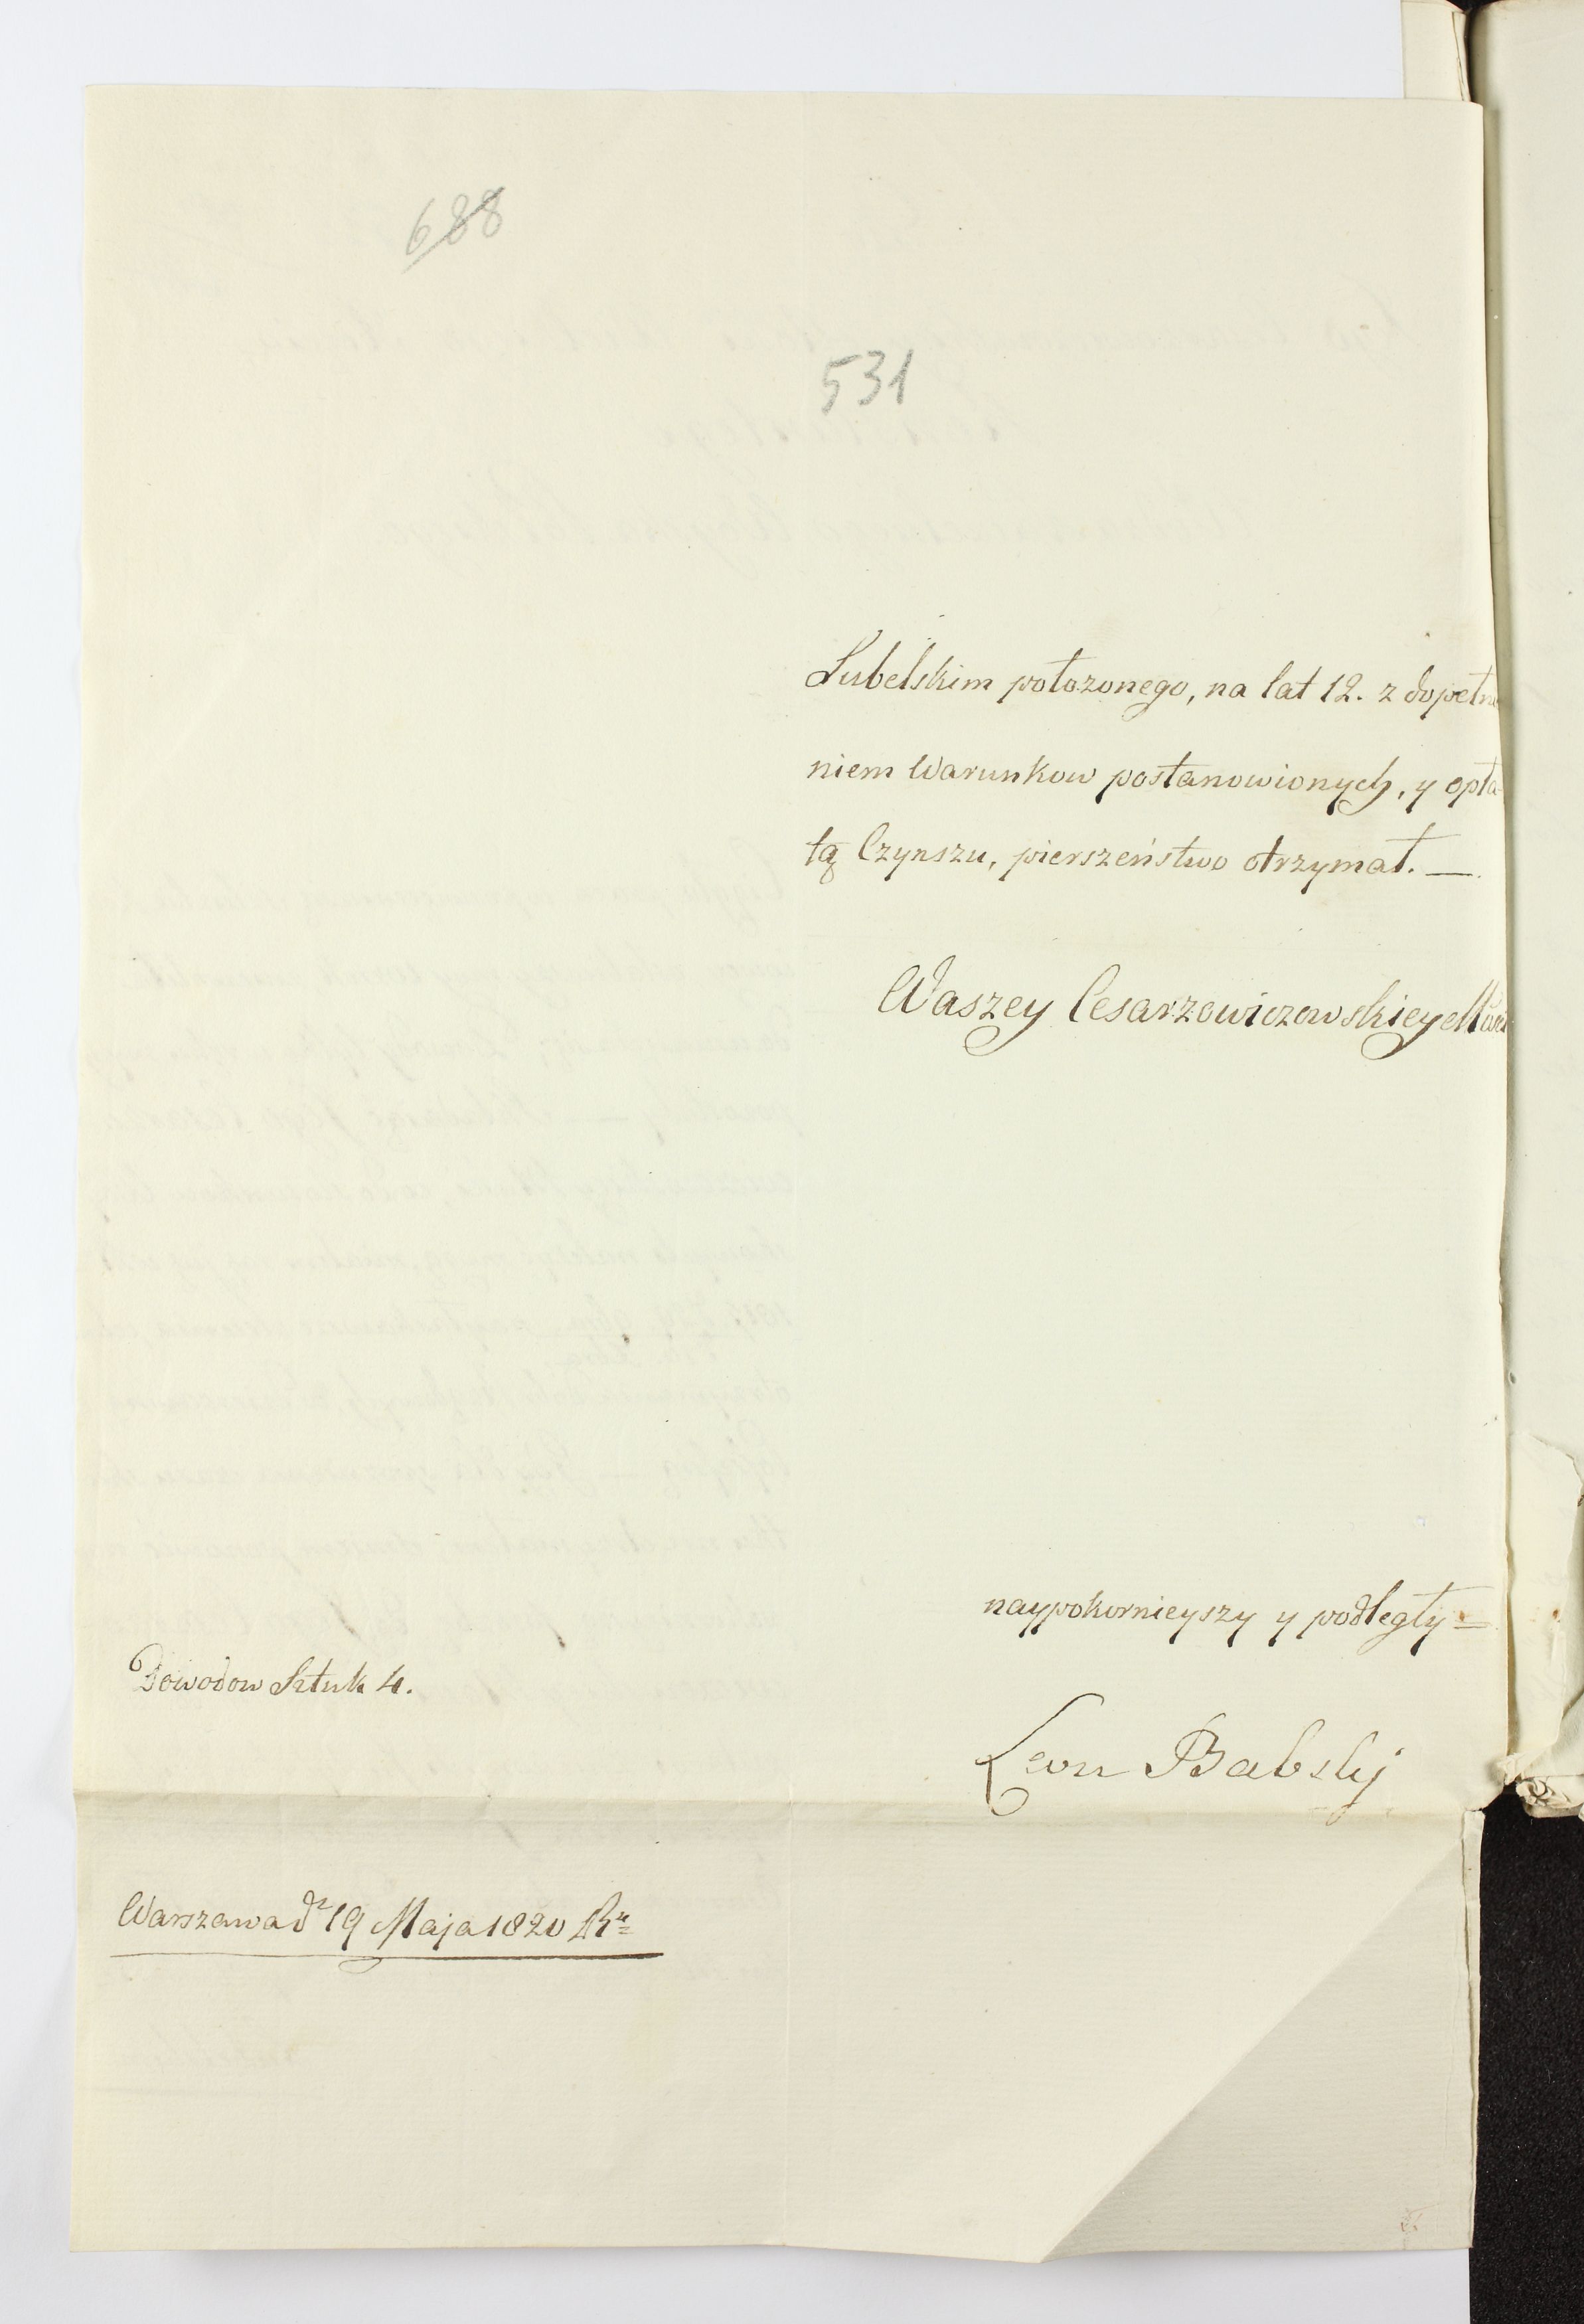 688
531
Lubelskim położonego, na lat 12. z dopełnie
niem Warunkow postanowionych, y opła-
tą Czynszu, pierszeństwo otrzymał. —
Waszey Cesarzowiczowskiey Mości
naypokornieyszy y podległy =
Dowodow Sztuk 4.
Leon Babsky
Warszawa d: 19 Maja 1820 Ru